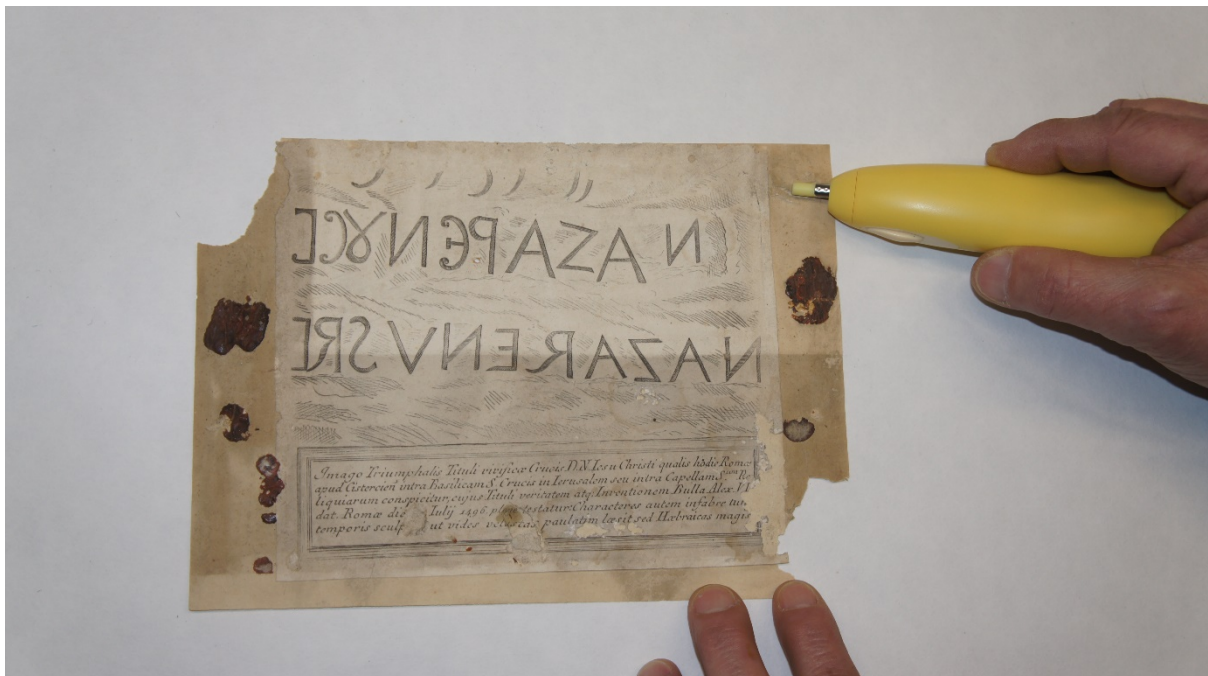 NAZAPENȣC
NAZARENVSR
Imago Triumphalis Tituli vivificæ Crucis D.N. Iesu Christi qualis hodie Romæ
apud Cistercien intra Basilicam S. Crucis in Ierusalem seu intra Capellam S.
liquiarum conspicitur, cujus Tituli veritatem atq; Inventionem Bulla Alex. VI
dat. Romæ die Iulij 1496 testatur. Characteres autem infabre
temporis ut vides paulatim læsit sed Hæbraicas magis